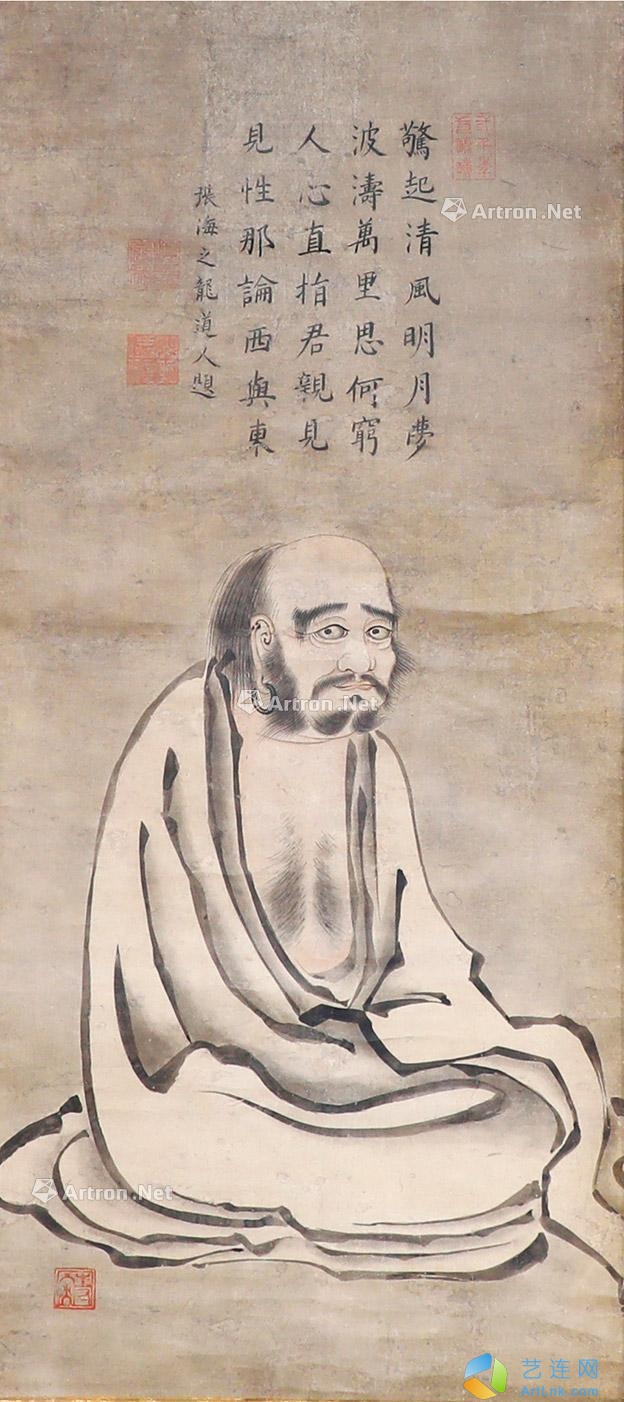 驚起清風明月夢
波濤萬里思何窮
人心直指君親見
見性那論西與東
張海之龍道人題
Artron.Net
Artron.Net
Artron.Net
艺连网
ArtLnk.com